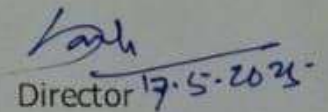 Director 17.5.2025